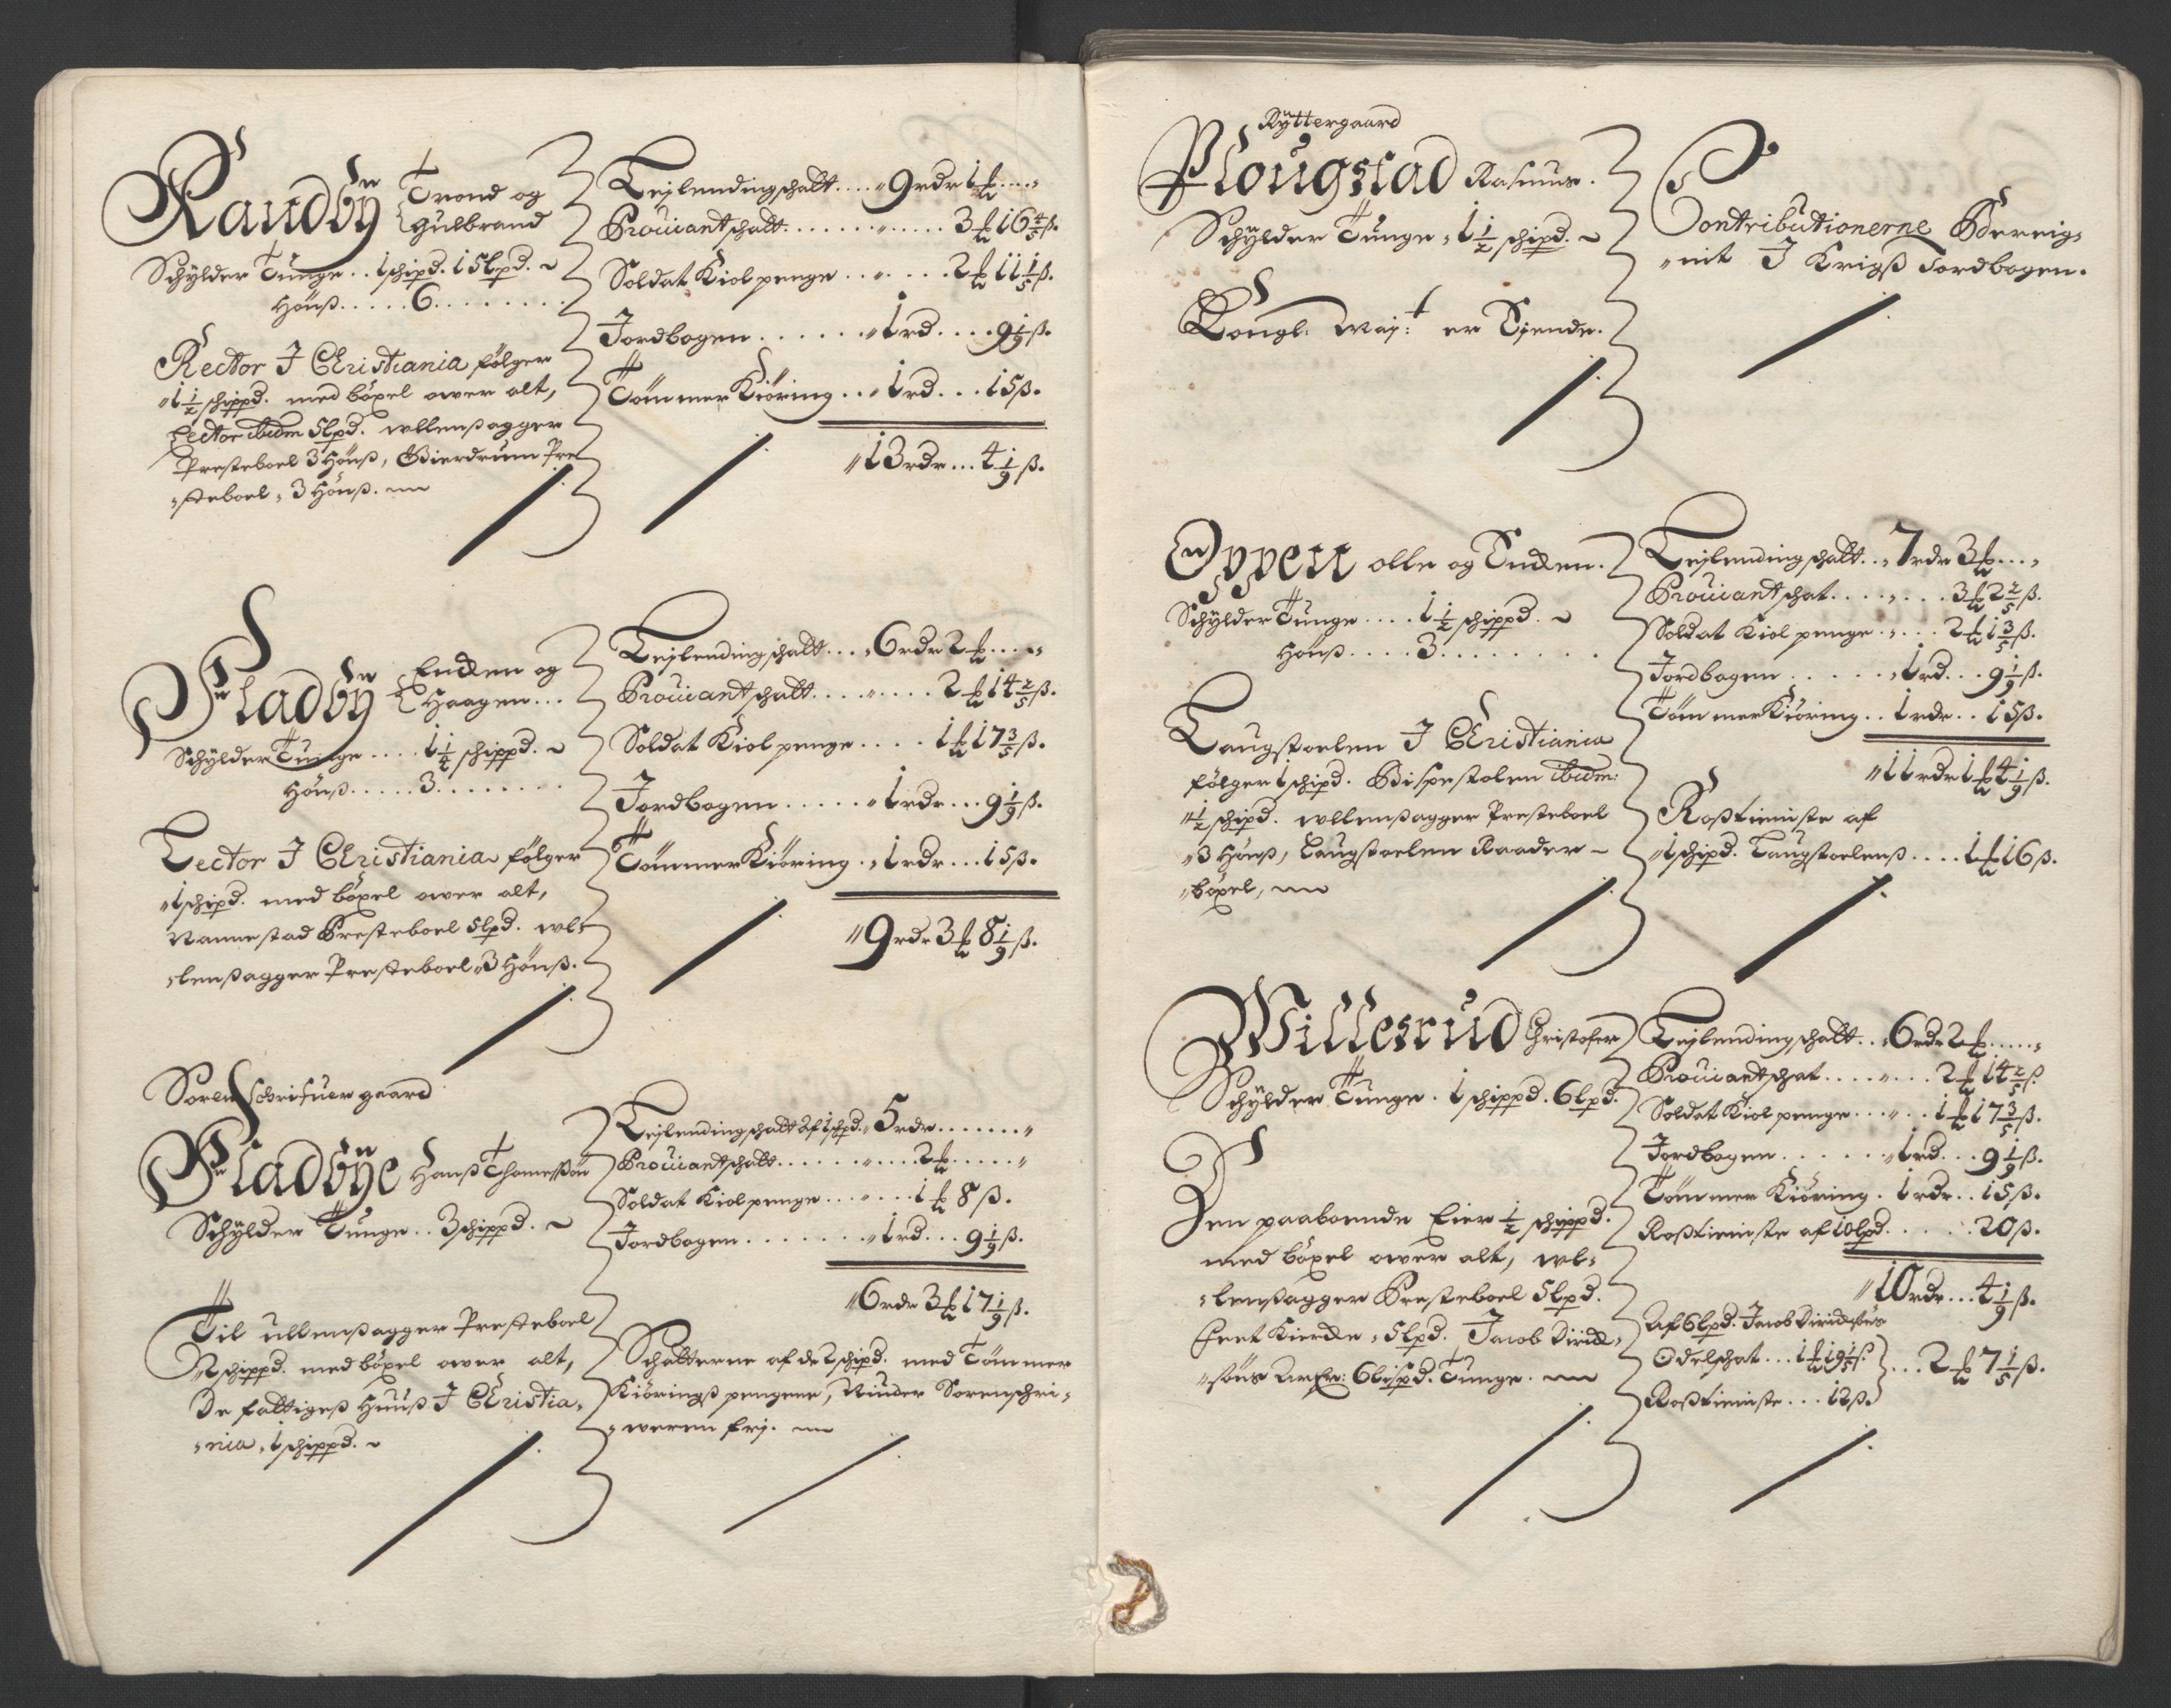 Randby Trond og
Gulbrand
Schÿlder Tunge .. 1 schipd. 15 lpd. ~
Hönß ..... 6 ........
Rector I Christiania følger
„ 1 1/2 schippd. med böxel ower alt,
Lector ibidm 5 lpd. wllensagger
Presteboel 3 Hönß, Gierdrum Pre
„steboel „ 3 Hönß.
Leilendingschatt .... „ 9 rdr 1 ƒ ....
Prouiantschatt ....... 3 ƒ 16 4/5 ß.
Soldat Kiolpenge ....... 2 ƒ 11 1/5 ß.
Jordbogen ...... „ 1 rd .... 9 1/9 ß.
Tömmer Kiöring ... „ 1 rd ... 15 ß.
„ 13 rdr ... 4 1/9 ß.
Fladby Endken og
Haagen ...
Schÿlder Tunge .... 1 1/4 schippd. ~
Hönß ..... 3 ........
Lector I Christiania følger
„ 1 schipd. med böxel ower alt,
Nannestad Presteboel 5 lpd. wl„
„lensagger Presteboel „ 3 Hönß.
Leilendingschatt .... „ 6 rdr 2 ƒ ....
Prouiantschatt ........ 2 ƒ 14 2/5 ß.
Soldat Kiolpenge .... 1 ƒ 17 3/5 ß.
Jordbogen ..... „ 1 rdr ... 9 1/9 ß.
Tömmer Kiöring .. „ 1 rdr ... 15 ß.
„ 9 rdr 3 ƒ 8 1/9 ß.
Sorenschrifuer gaard
Fladbÿe Hanß Thomesßön
Schÿlder Tunge .. 3 schippd. ~
Til ullensagger Presteboel
„ 2 schippd. med böxel ower alt,
De fattiges Huuß I Christia„
„nia „ 1 schippd. ~
Leilendingschatt af 1 schpd. „ 5 rdr .......
Prouiantschatt ......... 2 ƒ ......
Soldat Kiolpenge ...... 1 ƒ 8 ß.
Jordbogen ....... „ 1 rd ... 9 1/9 ß.
„ 6 rdr 3 ƒ 17 1/9 ß.
Schatterne af de 2 schipd. med Tömmer
Kiörings pengene, Niuder Sorenschri„
„weren frj.
Rÿttergaard
Plougstad Rasmus.
Schÿlder Tunge „ 1 1/2 schipd. ~
Kongl: May:t er Eÿende.
Contributionerne Bereig„
„nit I Krigß Jordbogen.
Oppen olle og Endken.
Schÿlder Tunge .... 1 1/2 schippd. ~
Hönß .... 3 ........
Laugstoelen I Christiania
følger 1 schipd. Bispestolen ibidm:
„ 1/2 schipd. wllensagger Presteboel
„ 3 Hönß, Laugstoelen Raader ~
„ böxel,
Leilendingschatt .. „ 7 rdr 3 ƒ ...
Prouiantschat ........ 3 ƒ 2 2/5 ß.
Soldat Kiolpenge ..... 2 ƒ 1 3/5 ß.
Jordbogen ..... „ 1 rd ... 9 1/9 ß.
Tömmer Kiöring .. 1 rdr .. 15 ß.
„ 11 rdr 1 ƒ 4 1/9 ß.
Roßtieniste af
„ 1 schipd. Laugstoelens .... 1 ƒ 16 ß.
Willesrud Christofer
Schÿlder Tunge . 1 schippd. 6 lpd.
Den paaboende Eier 1/2 schippd.
med böxel ower alt, wl„
„lensagger Presteboel 5 lpd.
Feet Kierke „ 5 lpd. Jacob Dirick„
„söns Arfw: 6 lispd. Tunge.
Leilendingschatt .. „ 6 rdr 2 ƒ .....
Prouiantschat ....... 2 ƒ 14 2/5 ß
Soldat Kiolpenge ..... 1 ƒ 17 3/5 ß.
Jordbogen ...... „ 1 rd ... 9 1/9 ß.
Tömmer Kiöring . 1 rdr .. 15 ß.
Roßtieniste af 10 lpd. ..... 20 ß.
„ 10 rdr ... 4 1/9 ß.
Af 6 lpd. Jacob Diricksöns
Odelschat ... 1 ƒ 19 1/5 ß. } ... 2 ƒ 7 1/5 ß.
Roßtieniste ... 12 ß.